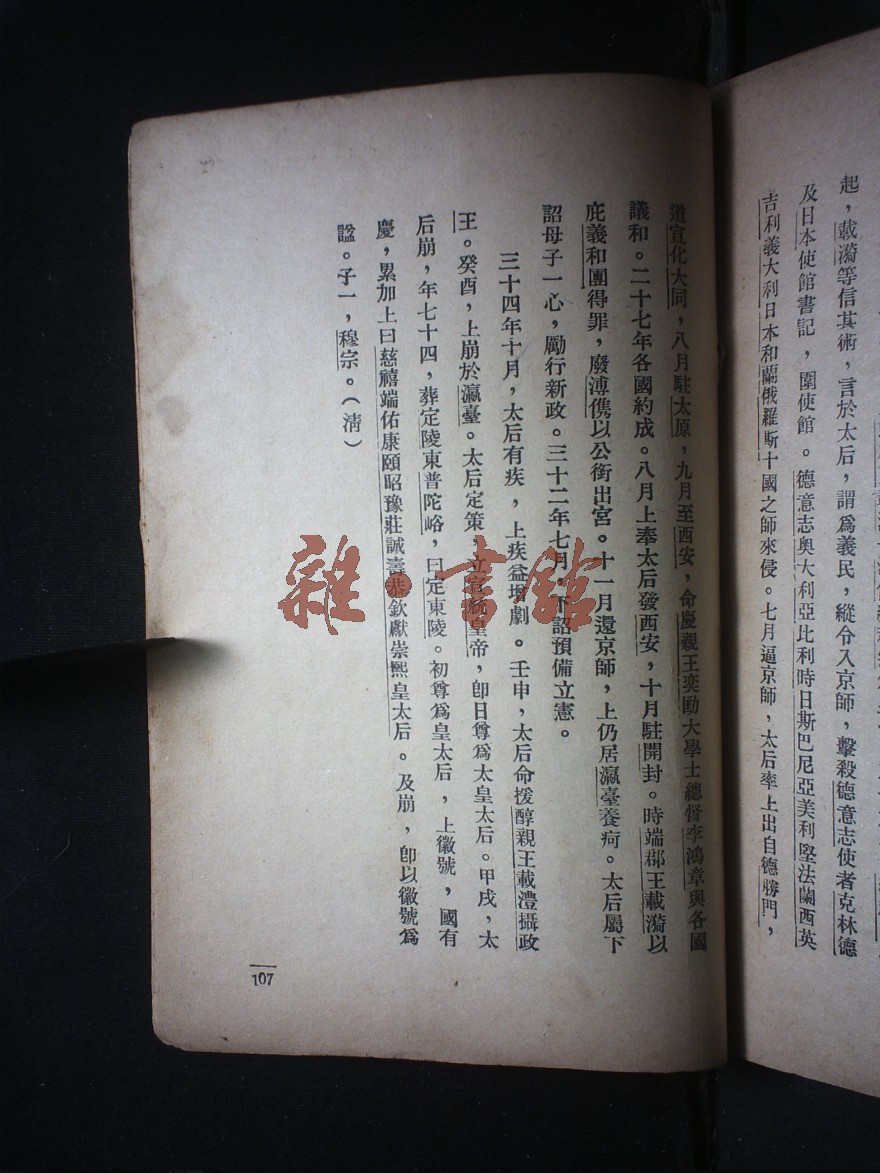 起，載漪等信其術，言於太后，謂爲義民，縱令入京師，擊殺德意志使者克林德
及日本使館書記，圍使館。德意志奧大利亞比利時日斯巴尼亞美利堅法蘭西英
吉利義大利日本和蘭俄羅斯十國之師來侵。七月逼京師，太后率上出自德勝門，
道宣化大同，八月駐太原，九月至西安，命慶親王奕劻大學士總督李鴻章與各國
議和。二十七年各國約成。八月上奉太后發西安，十月駐開封。時端郡王載漪以
庇義和團得罪，廢溥儁以公銜出宮。十一月還京師，上仍居瀛臺養疴。太后屬下
詔母子一心，勵行新政。三十二年七月，下詔預備立憲。
三十四年十月，太后有疾，上疾益增劇。壬申，太后命授醇親王載灃攝政
王。癸酉，上崩於瀛臺。太后定策，立宣統皇帝，卽日尊爲太皇太后。甲戌，太
后崩，年七十四，葬定陵東普陀峪，曰定東陵。初尊爲皇太后，上徽號，國有
慶，累加上曰慈禧端佑康頤昭豫莊誠壽恭欽獻崇熙皇太后。及崩，卽以徽號爲
諡。子一，穆宗。（淸）
107
雜·書館